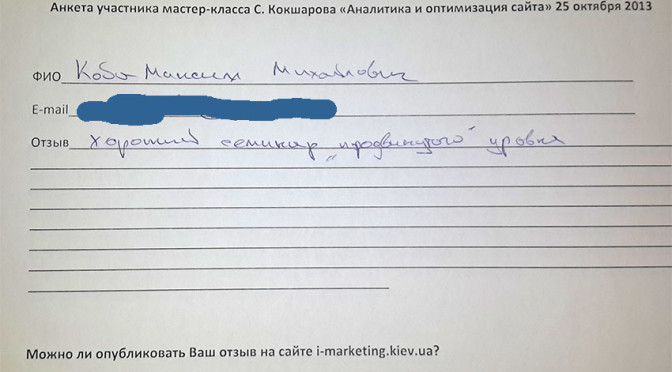 Анкета участника мастер-класса С. Кокшарова «Аналитика и оптимизация сайта» 25 октября 2013
ФИО Кобо Максим Михайлович
E-mail
Отзыв хороший семинар „продвинутого" уровня
Можно ли опубликовать Ваш отзыв на сайте i-marketing.kiev.ua?